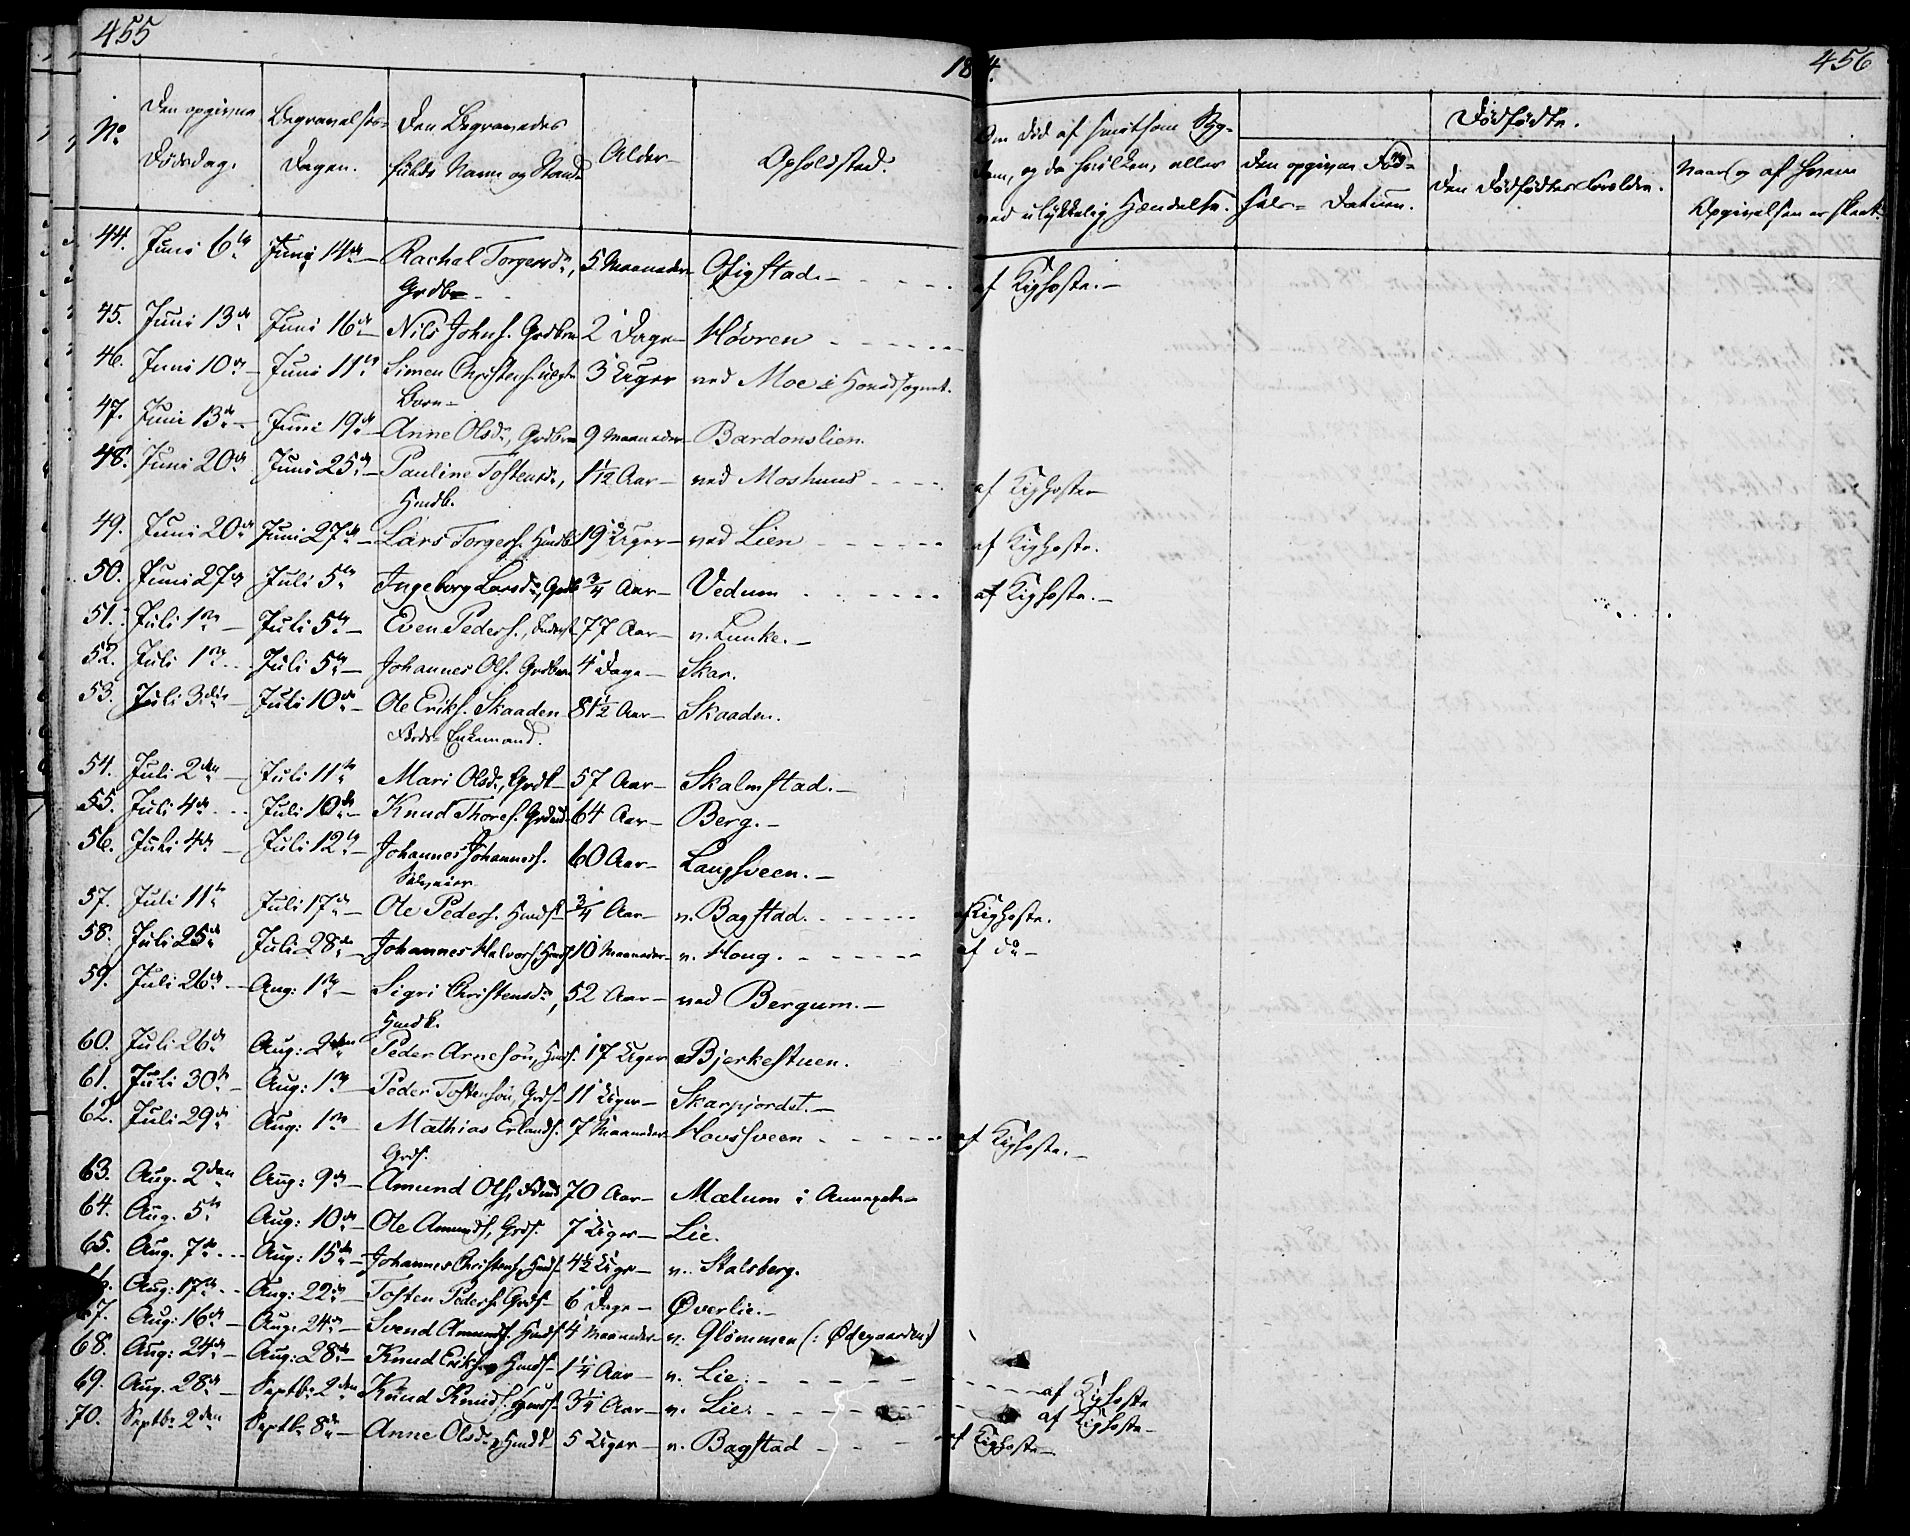 455
456
184.
No
Den opgivne Dødsdag.
Begravelses-Dagen.
Den Begravedes fulde Navn og Stand
Alder
Opholdsted.
Om død af smitsom Syg-
dom, og da hvilken, eller
ved ulykkelig Hændelse.
Dødfødte.
Den opgivne Fød-
sels- Datum.
Den Dødfødtes Forældre.
Naar og af hvem
Opgivelsen er skeet.
44. Juni 6te Juni 14de Rachel Torgersd., 5 Maaneder Ofigstad. - af Kighoste. -
Grdb.
45. Juni 13de Juni 16de Nils Johns. Grdbrn 2 Dage Høvren
46. Juni 10de Juni 11te Simen Christens. uægte 3 Uger ved Moe i Hovedsognet.
Barn
47. Juni 13de Juni 19de Anne Olsd., Grdbrn 9 Maaneder Bardonslien.
48. Juni 20de Juni 25de Pauline Tostensd., 1 1/2 Aar ved Moshuus af Kighoste
Husdb.
49. Juni 20de Juni 27de Lars Torgers. Husdb 19 Uger ved Lien af Kighoste.
50. Juni 27de Juli 5te Ingeborg Larsd., Grdb 3/4 Aar Vedum af Kighoste. -
51. Juli 1ste Juli 5te Even Peders., 77 Aar v. Lunke. -
52. Juli 1ste Juli 5te Johannes Ols. Grdbrn 4 Dage Skar.
53. Juli 3die Juli 10de Ole Eriks. Skaaden 81 1/2 Aar Skaaden.
Enkemand.
54. Juli 2den Juli 11te Mari Olsd., Grdk 57 Aar Skalmstad. -
55. Juli 4de Juli 10de Knud Thores. Grdmd 64 Aar Berg. -
56. Juli 4de Juli 12te Johannes Johanness. 60 Aar Langsveen. -
57. Juli 11te Juli 17de Ole Peders. Husds 3/4 Aar v. Bagstad. af Kighoste.
58. Juli 25de Juli 28de Johannes Halvors. Husds 10 Maaneder v. Houg. af do -
59. Juli 26de Aug: 1ste Sigri Christensd., 52 Aar ved Bergum. -
Husdk.
60. Juli 26de Aug: 2den Peder Arnesøn, Husds. 17 Uger Bjerkestuen.
61. Juli 30te Aug: 1ste Peder Tostensøn, Grds 11 Uger Skarpjordet. -
62. Juli 29de Aug: 1ste Mathias Erlands. 7 Maaneder Hovsveen af Kighoste. -
Grds.
63. Aug. 2den Aug: 9de Amund Ols. 70 Aar Mælum i Annexet
64. Aug. 5te Aug: 10de Ole Amunds., Grds. 7 Uger Lie.
65. Aug. 7de Aug: 15de Johannes Christens. Husds 4 1/2 Uger v. Stalsberg.
66. Aug: 17de Aug: 22de Tosten Peders. Grds 6 Dage Øverlie. -
67. Aug: 16de Aug. 24de Svend Amunds. Husds 4 Maaneder v. Glømmen (: Ødegaarden)
68. Aug: 24de Aug: 28de Knud Eriks., Husds 1 1/4 Aar v. Lie. af Kighoste
69. Aug. 28de Septb: 2den Knud Knuds. Husds 3 1/4 Aar v. Lie. af Kighoste
70. Septb: 2den Septb. 8de Anne Olsd., Husdd 5 Uger v. Bagstad af Kighoste